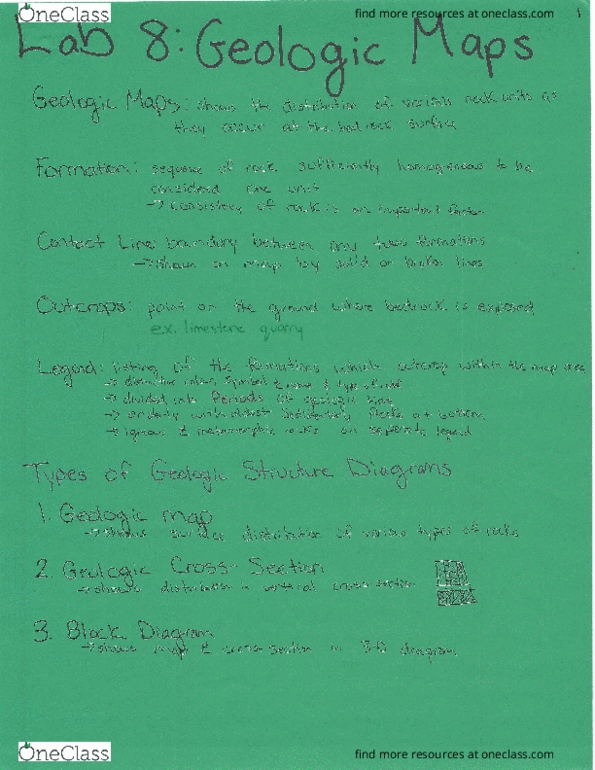 OneClass
find more resources at oneclass.com
1
Lab 8: Geologic Maps
Geologic Maps: shows the distribution of various rock units as
they occur at the bedrock surface
Formation: sequence of rock sufficiently homogenous to be
considered one unit
→ consistency of rock is an important factor
Contact Line: boundary between any two formations
→ shown on map by solid or broken lines
Outcrops: point on the ground where bedrock is exposed
ex. limestone quarry
Legend: listing of the formations which outcrop within the map area
→ colour, symbol & name & type of rock
→ divided into Periods of geologic time
→ with oldest sedimentary rocks at bottom
→ igneous & metamorphic rocks on separate legend
Types of Geologic Structure Diagrams
1. Geologic map
→ shows surface distribution of various types of rocks
2. Geologic Cross-Section
→ shows distribution in vertical cross section
3. Block Diagram
→ shows map & cross-section in 3-D diagram
OneClass
find more resources at oneclass.com